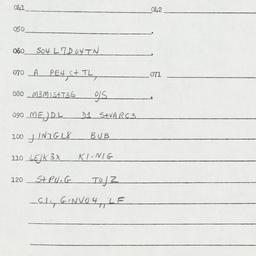 041 042
050
060 SO4L7DO4TN
070 A PE4,St TL, 071
080 M3MIStT3G O/S
090 MEJDL D1 StVARG3
100 JIN7GL8 BUB
110 LEJK3X KI.NIG
120 StPU.G TOJZ
CI., G.NVO4,, LF